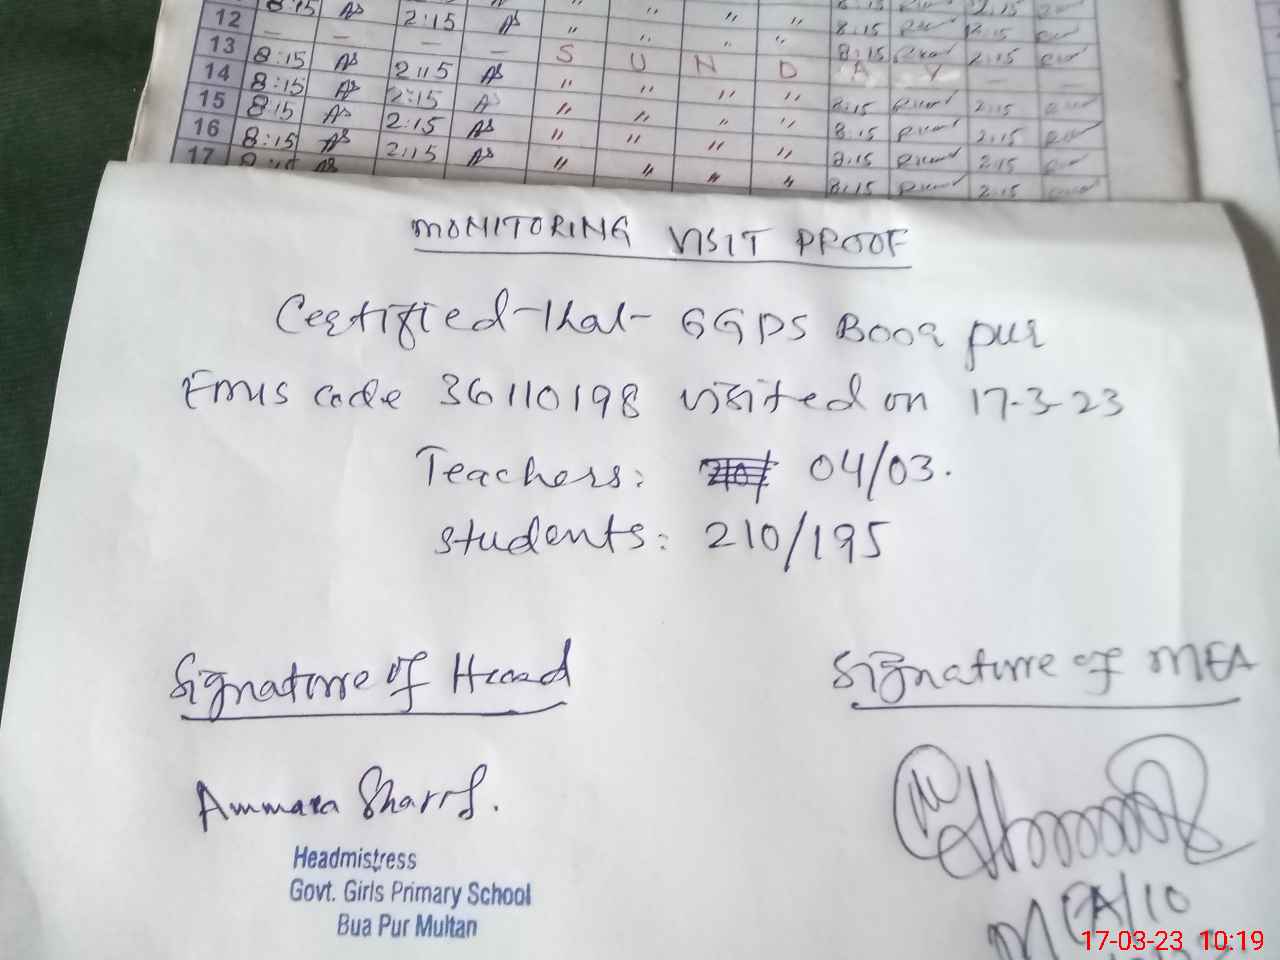 12 8:15 As 2:15 As " " " " 8:15 2:15
13 — — — — S U N D A Y —
14 8:15 As 2:15 As " " " " 8:15 2:15
15 8:15 As 2:15 As " " " " 8:15 2:15
16 8:15 As 2:15 As " " " " 8:15 2:15
17 " " " " 8:15 2:15
MONITORING VISIT PROOF
Certified that GGPS Booa pur
Emis code 36110198 visited on 17-3-23
Teachers: 04/03.
students: 210/195
Signature of Head
Signature of MEA
Ammara Sharif.
Headmistress
Govt. Girls Primary School
Bua Pur Multan
MEA/10
17-03-23 10:19